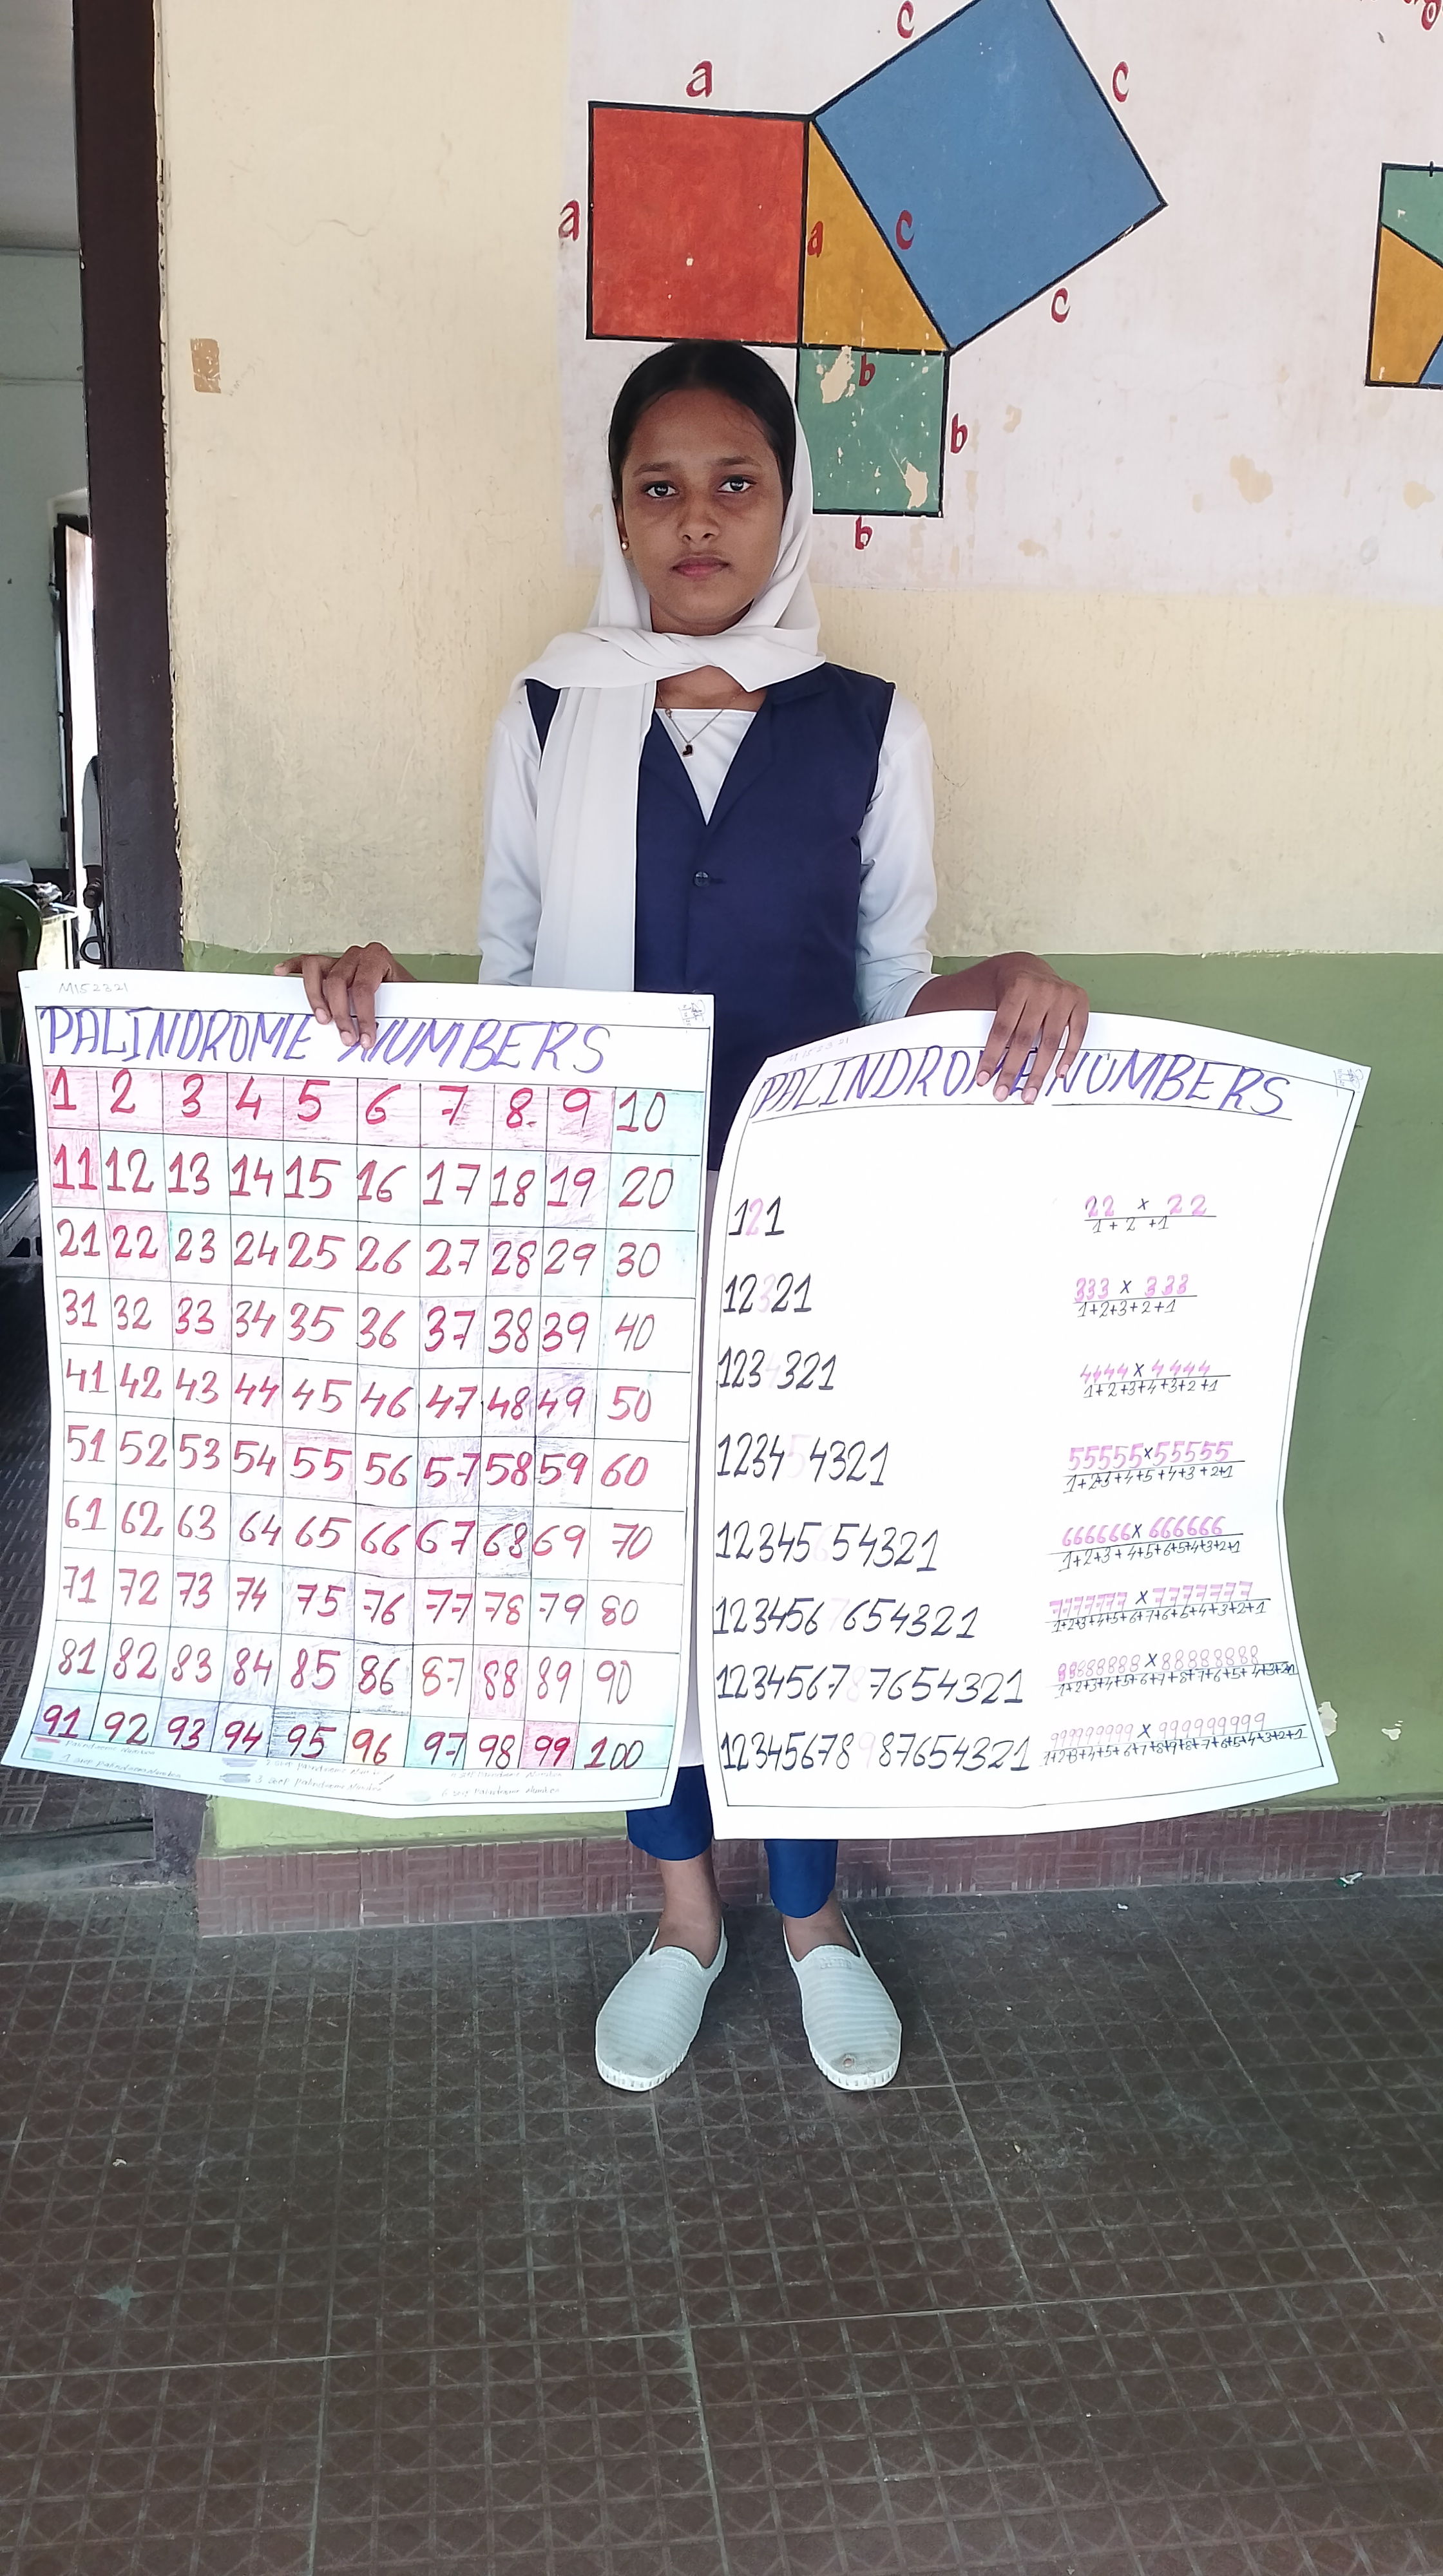 a
c
c
a
a
c
c
b
b
b
M152321
PALINDROME NUMBERS
1 2 3 4 5 6 7 8 9 10
11 12 13 14 15 16 17 18 19 20
21 22 23 24 25 26 27 28 29 30
31 32 33 34 35 36 37 38 39 40
41 42 43 44 45 46 47 48 49 50
51 52 53 54 55 56 57 58 59 60
61 62 63 64 65 66 67 68 69 70
71 72 73 74 75 76 77 78 79 80
81 82 83 84 85 86 87 88 89 90
91 92 93 94 95 96 97 98 99 100
Palindrome Number
1 step palindrome Number
2 step palindrome Number
3 step palindrome Number
6 step palindrome Number
M152321
PALINDROME NUMBERS
121 22 x 22
1+2+1
12321 333 x 333
1+2+3+2+1
1234321 4444 x 4444
1+2+3+4+3+2+1
123454321 55555x55555
1+2+3+4+5+4+3+2+1
12345654321 666666x666666
1+2+3+4+5+6+5+4+3+2+1
1234567654321 7777777 x 7777777
1+2+3+4+5+6+7+6+5+4+3+2+1
123456787654321 88888888 x 88888888
1+2+3+4+5+6+7+8+7+6+5+4+3+2+1
12345678987654321 999999999 x 999999999
1+2+3+4+5+6+7+8+9+8+7+6+5+4+3+2+1